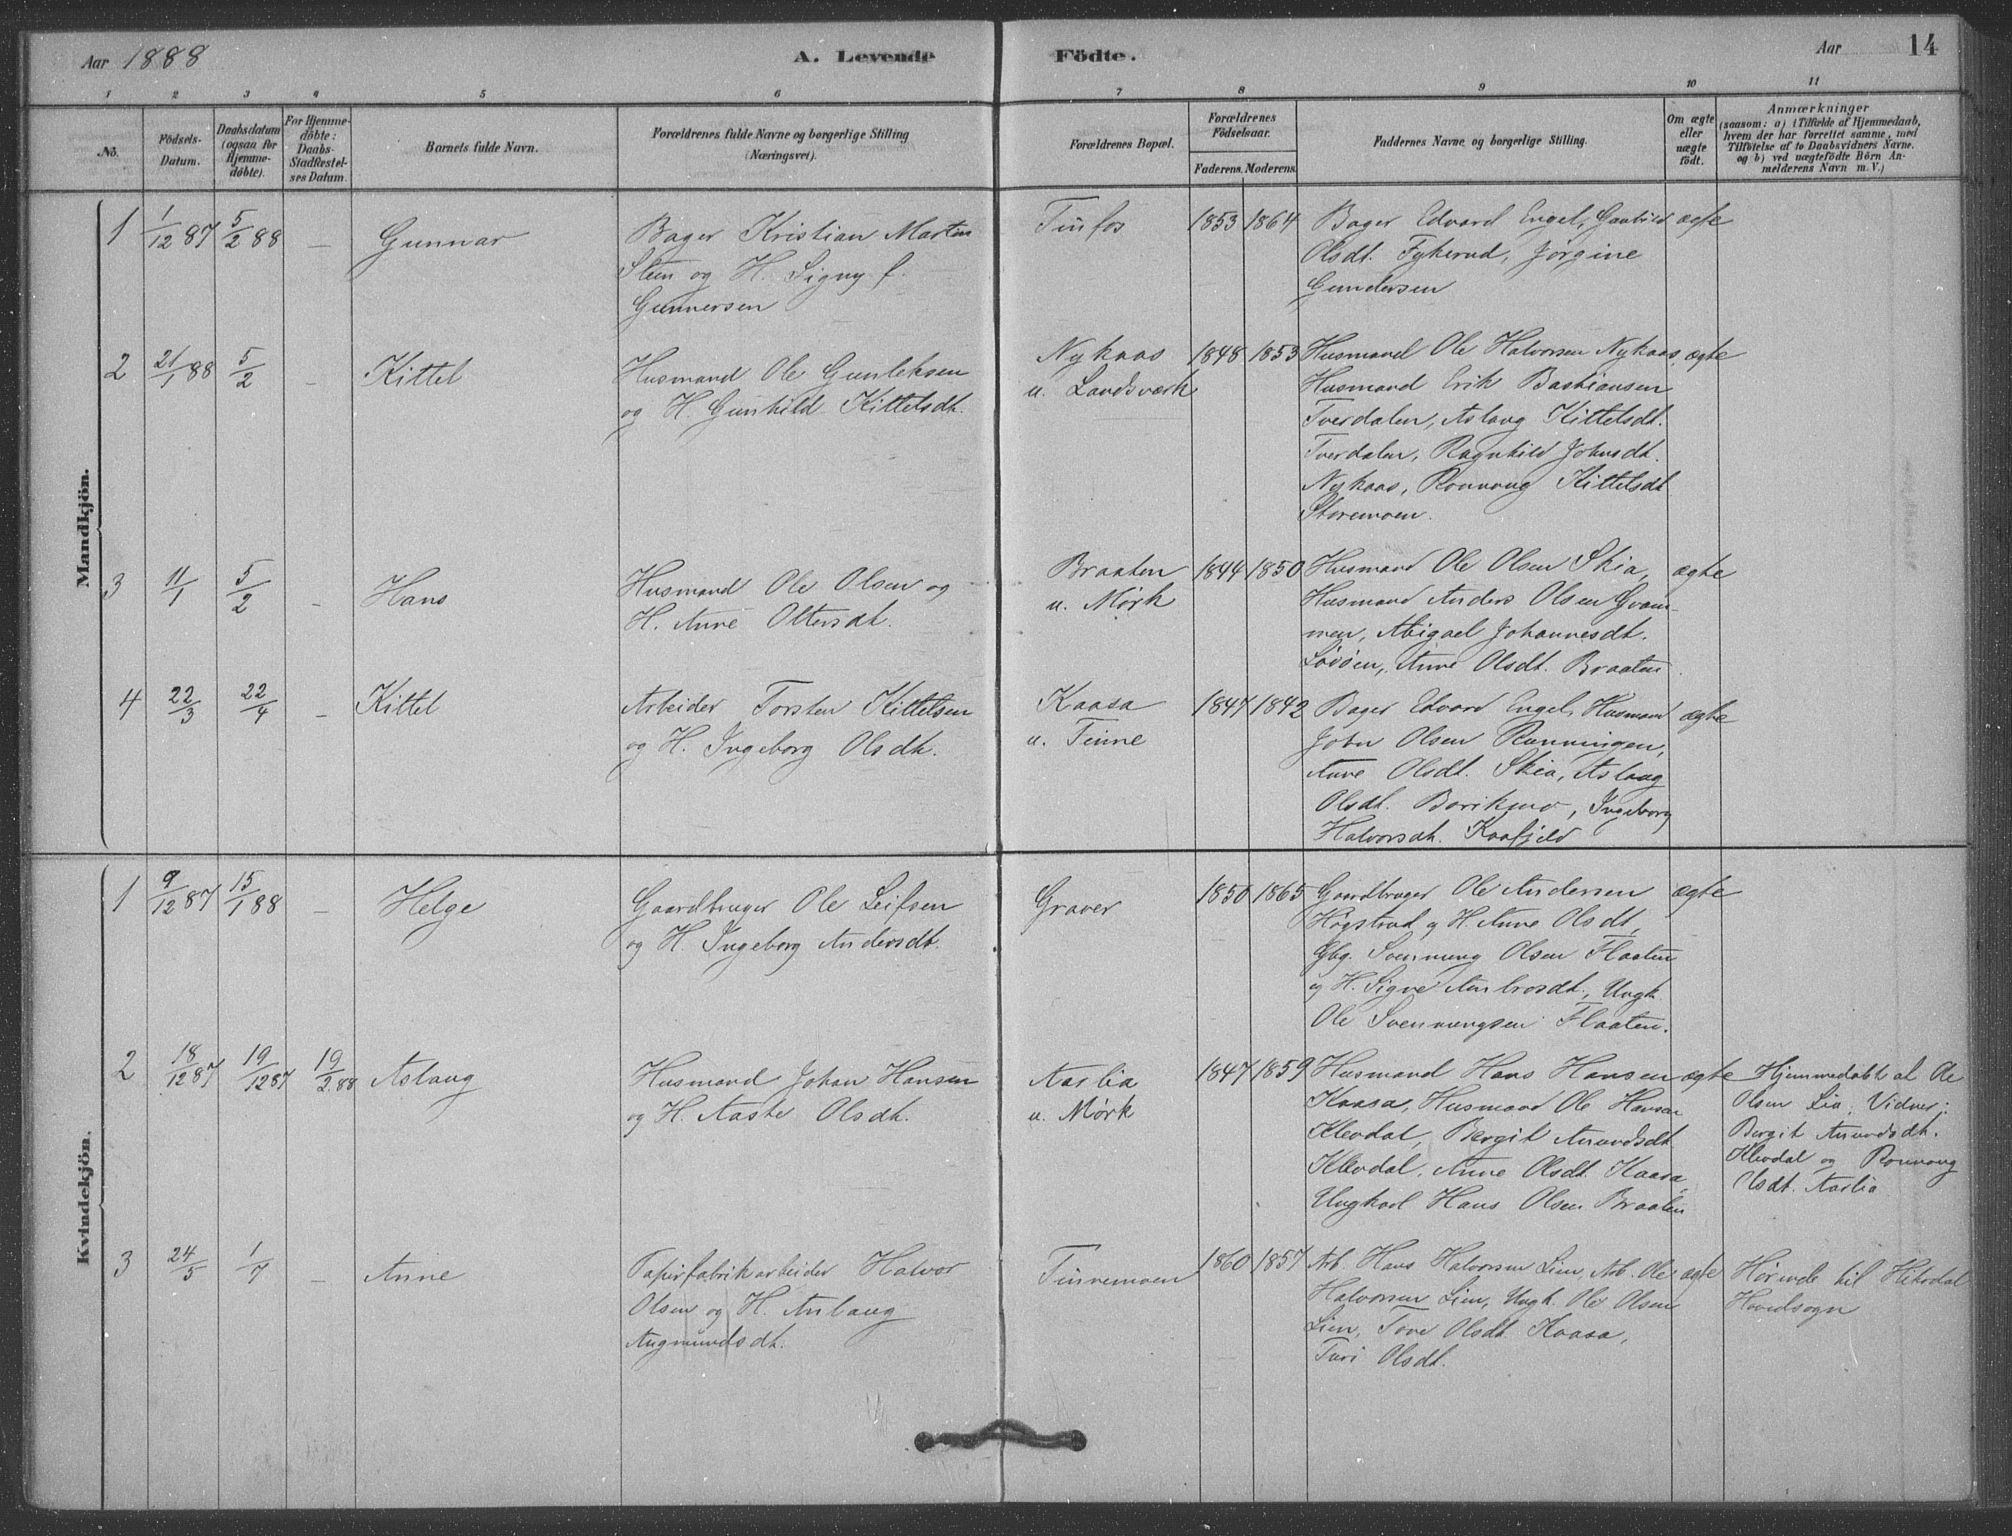 Aar 1888
A. Levende Födte.
Aar
14
1 2 3 4 5 6 7 8 9 10 11
No.
Födsels-Datum.
Daabsdatum (ogsaa for Hjemmedöbte).
For Hjemmedöbte: Daabs-Stadfæstelses Datum.
Barnets fulde Navn.
Forældrenes fulde Navne og borgerlige Stilling (Næringsvei).
Forældrenes Bopæl.
Forældrenes Födselsaar.
Faderens. Moderens.
Faddernes Navne og borgerlige Stilling.
Om ægte eller uægte födt.
Anmærkninger
(saasom: a) i Tilfælde af Hjemmedaab, hvem der har forrettet samme, med Tilföielse af to Daabsvidners Navne. og b) ved uægtefödte Börn Anmelderens Navn m. V.)
Mandkjön.
1 1/12 87 5/2 88 – Gunnar
Bager Kristian Martin
Steen og H. Signy f.
Gunnersen
Tinfos
1853 1864
Bager Edvard Engel, Gunhild
Olsdt. Fykerud, Jørgine
Gundersen
ægte
2 21/1 88 5/2 – Kittel
Husmand Ole Gunleksen
og H. Gunhild Kittelsdt.
Nykaas
u. Landsværk
1848 1853
Husmand Ole Halvorsen Nykaas,
Husmand Erik Bastiansen
Tverdalen, Aslaug Kittelsdt.
Tverdalen, Ragnhild Johnsdt.
Nykaas, Rønnaug Kittelsdt
Storemoen.
ægte
3 11/1 5/2 – Hans
Husmand Ole Olsen og
H. Anne Ottersdt.
Braaten
u. Mørk
1844 1850
Husmand Ole Olsen Skia,
Husmand Anders Olsen Gvam-
men, Abigael Johannesdt.
Anne Olsdt. Braaten.
ægte
4 22/3 22/4 – Kittel
Arbeider Torsten Kittelsen
og H. Ingeborg Olsdt.
Kaasa
u. Tinne
1847 1842
Bager Edvard Engel, Husmand
John Olsen Rønningen,
Anne Olsdt. Skia, Aslaug
Olsdt. Børikmo, Ingeborg
Halvorsdt. Kaafjeld
ægte
Kvindekjön.
1 9/12 87 15/1 88 – Helge
Gaardbruger Ole Leifsen
og H. Ingeborg Andersdt.
Graver
1850 1865
Gaardbruger Ole Andersen
Høgstrud og H. Anne Olsdt,
Gbg. Svennung Olsen Flaaten
og H. Signe Ambrosdt., Ungk.
Ole Svennungsen Flaaten.
ægte
2 18/12 87 19/12 87 19/2 88 Aslaug
Husmand Johan Hansen
og H. Aaste Olsdt.
Aarlia
u. Mørk
1847 1859
Husmand Hans Hansen
Kaasa, Husmand Ole Hansen
Klevdal, Bergit Amundsdt
Klevdal, Anne Olsdt. Kaasa,
Ungkarl Hans Olsen Braaten
ægte
Hjemmedøbt af Ole
Olsen Lia. Vidner:
Bergit Amundsdt.
Klevdal og Rønnaug
Olsdt. Aarlia
3 24/5 1/7 – Anne
Papirfabrikarbeider Halvor
Olsen og H. Aslaug
Augmundsdt.
Tinnemoen
1860 1857
Arb. Hans Halvorsen Lien, Arb. Ole
Halvorsen Lien, Ungk. Ole Olsen
Lien, Tove Olsdt. Kaasa,
Turi Olsdt.
ægte
Hørende til Hiterdal
Hovedsogn